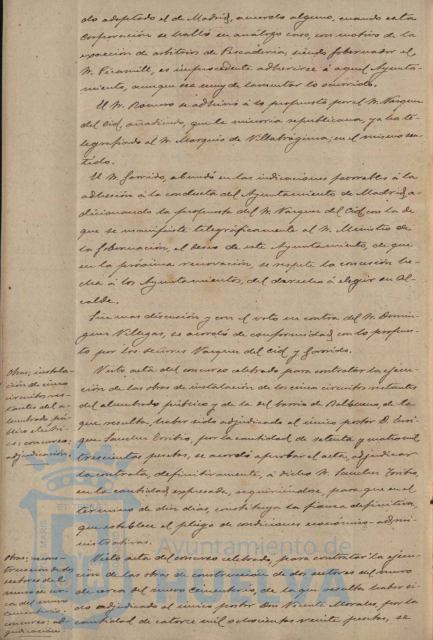 do adoptado el de Madrid, acuerdo alguno, cuando esta
Corporación se halló en análogo caso, con motivo de la
exacción de arbitrios de Pescadería, siendo Gobernador el
Sr. es improcedente adherirse á aquel Ayunta-
miento, aunque sea muy de lamentar lo ocurrido.
El Sr. Romero se adhirió á lo propuesto por el Sr. Vazquez
del Cid, añadiendo, que la minoria republicana, ya ha te-
legrafiado al Sr. Marqués de Villabrágima, en el mismo sen-
tido.
El Sr. Garrido, abundó en las indicaciones favorables á la
adhesión á la conducta del Ayuntamiento de Madrid, a-
dicionando la propuesta del Sr. Vazquez del Cid, con la de
que se manifieste telegráficamente al Sr. Ministro de
la Gobernación, el deseo de este Ayuntamiento, de que
en la próxima renovación, se respete la concesión he-
cha á los Ayuntamientos, del derecho á elegir su Al-
calde.
Sin mas discusión y con el voto en contra del Sr. Domin-
guez Villegas, se acordó de conformidad con lo propues-
to por los señores Vazquez del Cid y Garrido.
Obras; instala-
ción de cinco
circuitos res-
tantes del a-
lumbrado pú-
blico eléctri-
co; concurso;
adjudicación.
Visto acta del concurso celebrado para contratar la ejecu-
ción de las obras de instalación de los cinco circuitos restantes
del alumbrado público y de la del barrio de de la
que resulta, haber sido adjudicado al único postor D. Enri-
que Sanchez Toribio, por la cantidad de setenta y cuatro mil
trescientas pesetas, se acordó aprobar el acta, adjudicar
la contrata, definitivamente, á dicho Sr. Sanchez Toribio,
en la cantidad expresada, requiriéndose, para que en el
término de diez dias, constituya la fianza definitiva,
que establece el pliego de condiciones económico-admi-
nistrativas.
Obras; cons-
trucción de dos
sectores del
muro de cer-
ca del nuevo
Cementerio;
concurso; ad-
judicación.
Visto acta del concurso celebrado, para contratar la ejecu-
ción de las obras de construcción de dos sectores del muro
de cerca del nuevo Cementerio, de la que resulta haber si-
do adjudicado al único postor Don Vicente Morales, por la
cantidad de catorce mil ochocientas veinte pesetas, se
Ayuntamiento de
HUELVA